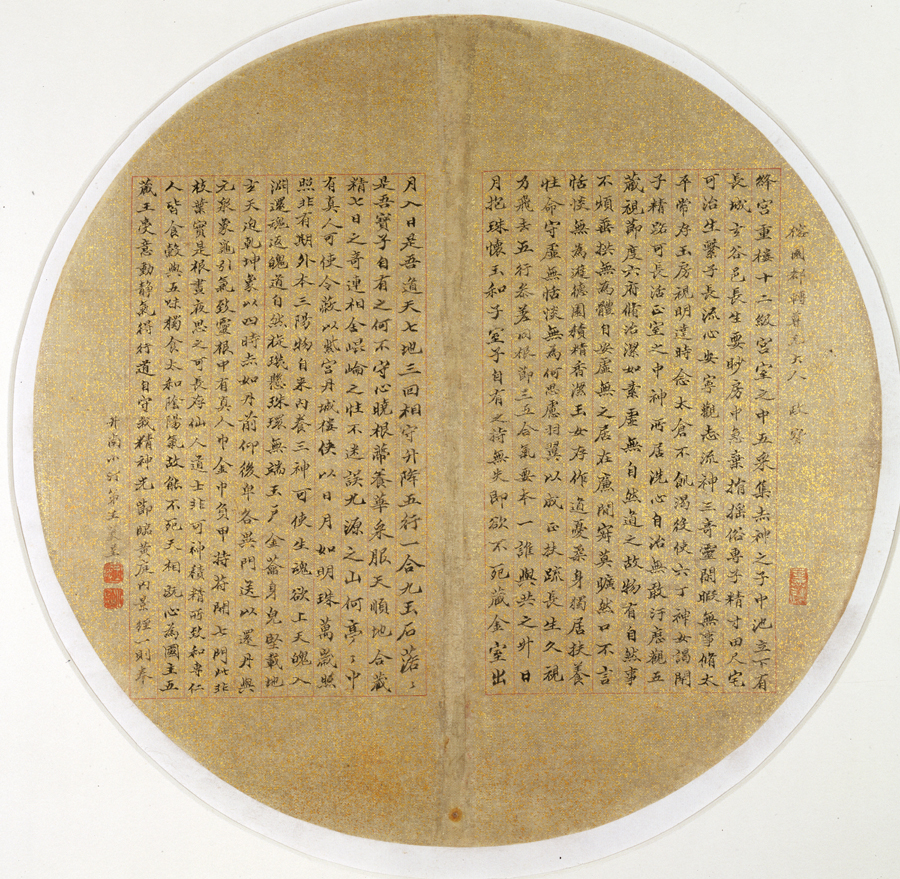 絳宮重樓十二級宮室之中五采集赤神之子中池立下有
長城玄谷邑長生要眇房中急棄捐搖俗專子精寸田尺宅
可治生繫子長流心安寧觀志流神三奇靈閑暇無事脩太
平常存玉房視明達時念太倉不飢渴役使六丁神女謁閉
子精路可長活正室之中神所居洗心自治無敢汙歷觀五
藏視節度六府脩治潔如素虛無自然道之故物有自然事
不煩垂拱無為體自安虛無之居在廉間寂莫曠然口不言
恬惔無為遊德園積精香潔玉女存作道憂柔身獨居扶養
性命守虛無恬惔無為何思慮羽翼以成正扶疏長生久視
乃飛去五行參差同根節三五合氣要本一誰與共之升日
月抱珠懷玉和子室子自有之持無失即欲不死藏金室出
月入日是吾道天七地三回相守升降五行一合九玉石落〻
是吾寶子自有之何不守心曉根蒂養華采服天順地合藏
精七日之奇連相合崐崙之性不迷誤九源之山何亭〻中
有真人可使令蔽以紫宮丹城樓俠以日月如明珠萬歲照
照非有期外本三陽物自来內養三神可使生魂欲上天魄入
淵還魂返魄道自然旋璣懸珠環無端玉戶金籥身皃堅載地
玄天迫乾坤象以四時赤如丹前仰後卑各異門送以還丹與
元泉象龜引氣致靈根中有真人巾金巾負甲持符開七門此非
枝葉實是根晝夜思之可長存仙人道士非可神積精所致和專仁
人皆食穀與五味獨食太和陰陽氣故能不死天相溉心為國主五
藏王受意動靜氣得行道自守我精神光節臨黃庭內景經一則奉